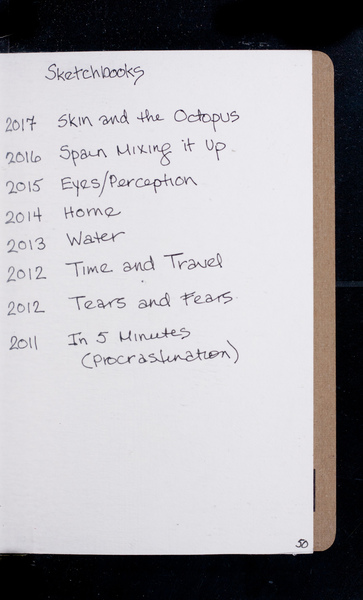 Sketchbooks
2017 Skin and the Octopus
2016 Spain Mixing it Up.
2015 Eyes/Perception
2014 Home
2013 Water
2012 Time and Travel
2012 Tears and Fears
2011 In 5 Minutes
(Procrastination)
50